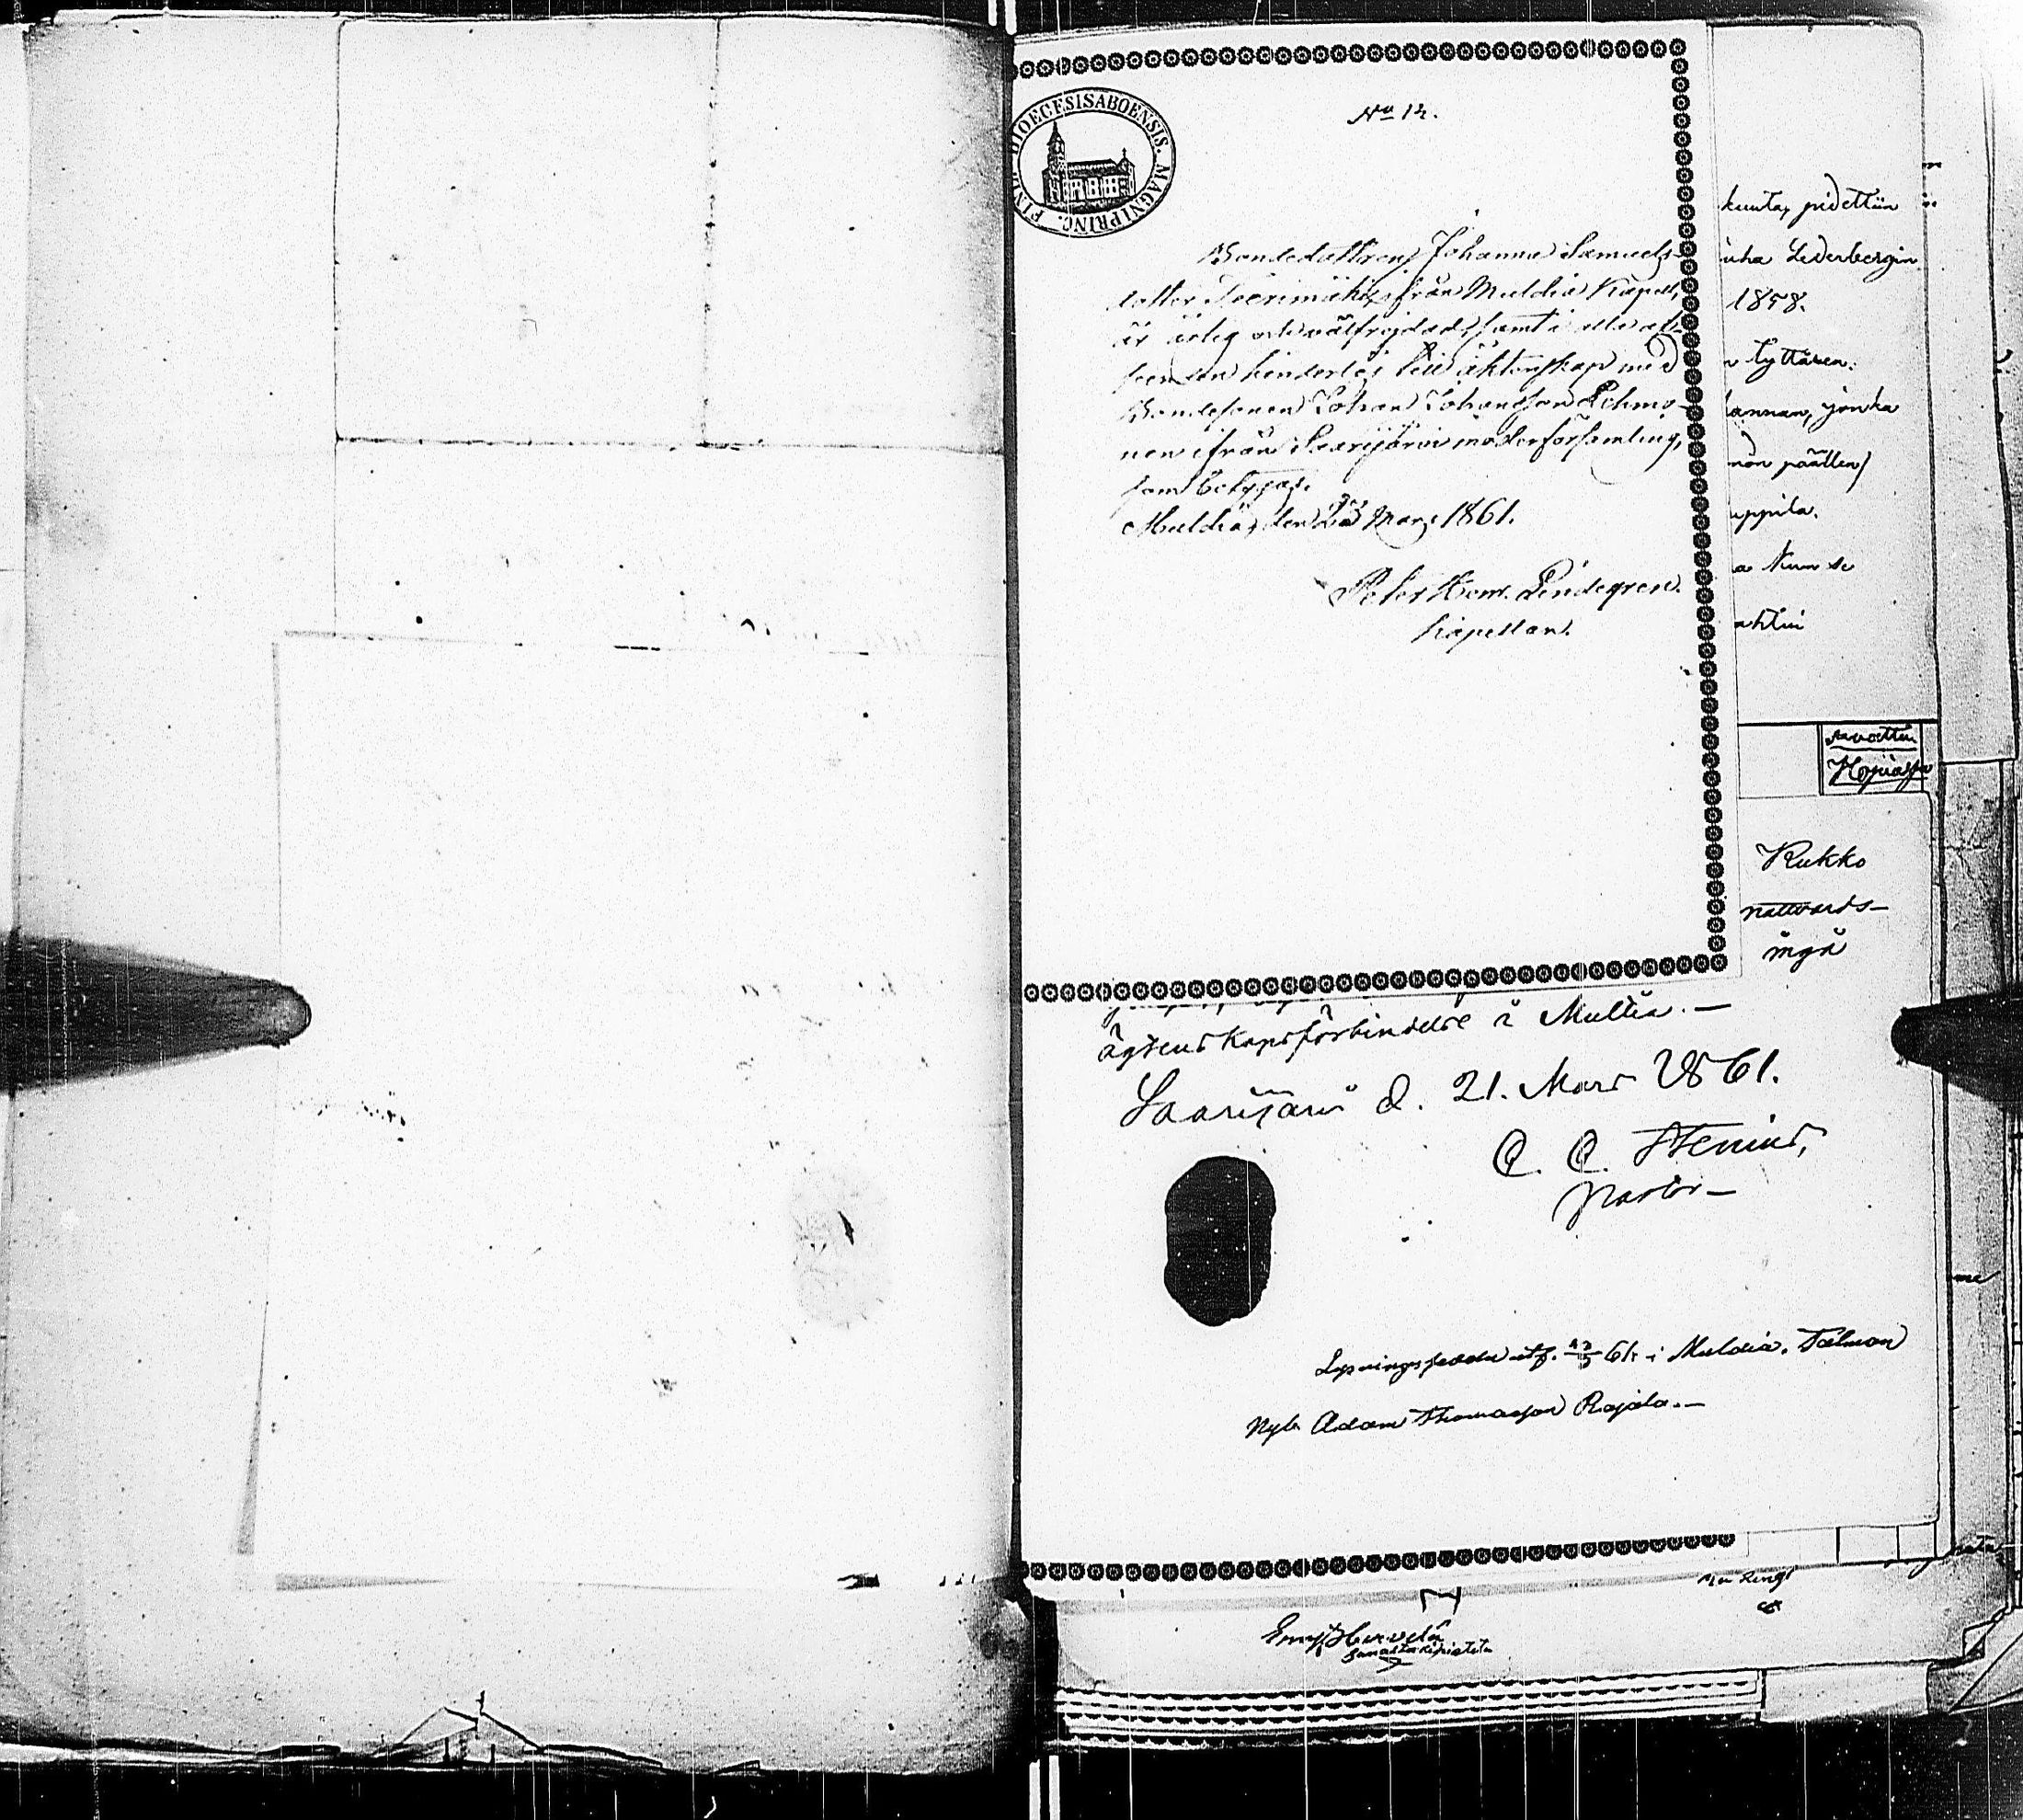 No 12.
DIOECESISABOENSIS. MAGNIPRINC. FINL
Bondedottren Johanna Samuels-
dotter Teerimäki, från Muldia Kapell,
är ärlig och välfrejdad, samt i alla af-
seenden hinderlös till äktenskap med
Bondesonen Johan Johansson Lehmo-
nen ifrån Saarijärvi moderförsamling,
som betygas.
Muldia, den 23 Mars 1861.
Peter Hem. Lindegren.
Kapellan.
ägtenskapsförbindelse i Multia.—
Saarijärvi d. 21. Mars 1861.
C. C. Stenius,
Pastor—
Lysningssedeln utg. i Muldia. Talman
Nyb. Adam Thomasson Rajala.—
kunta, pidettiin
Lederbergin
1858.
tyttären:
jonka
päällen
uppila.
a kun se
ahtui
Kopiassa
Kukko
nattvards-
ingå